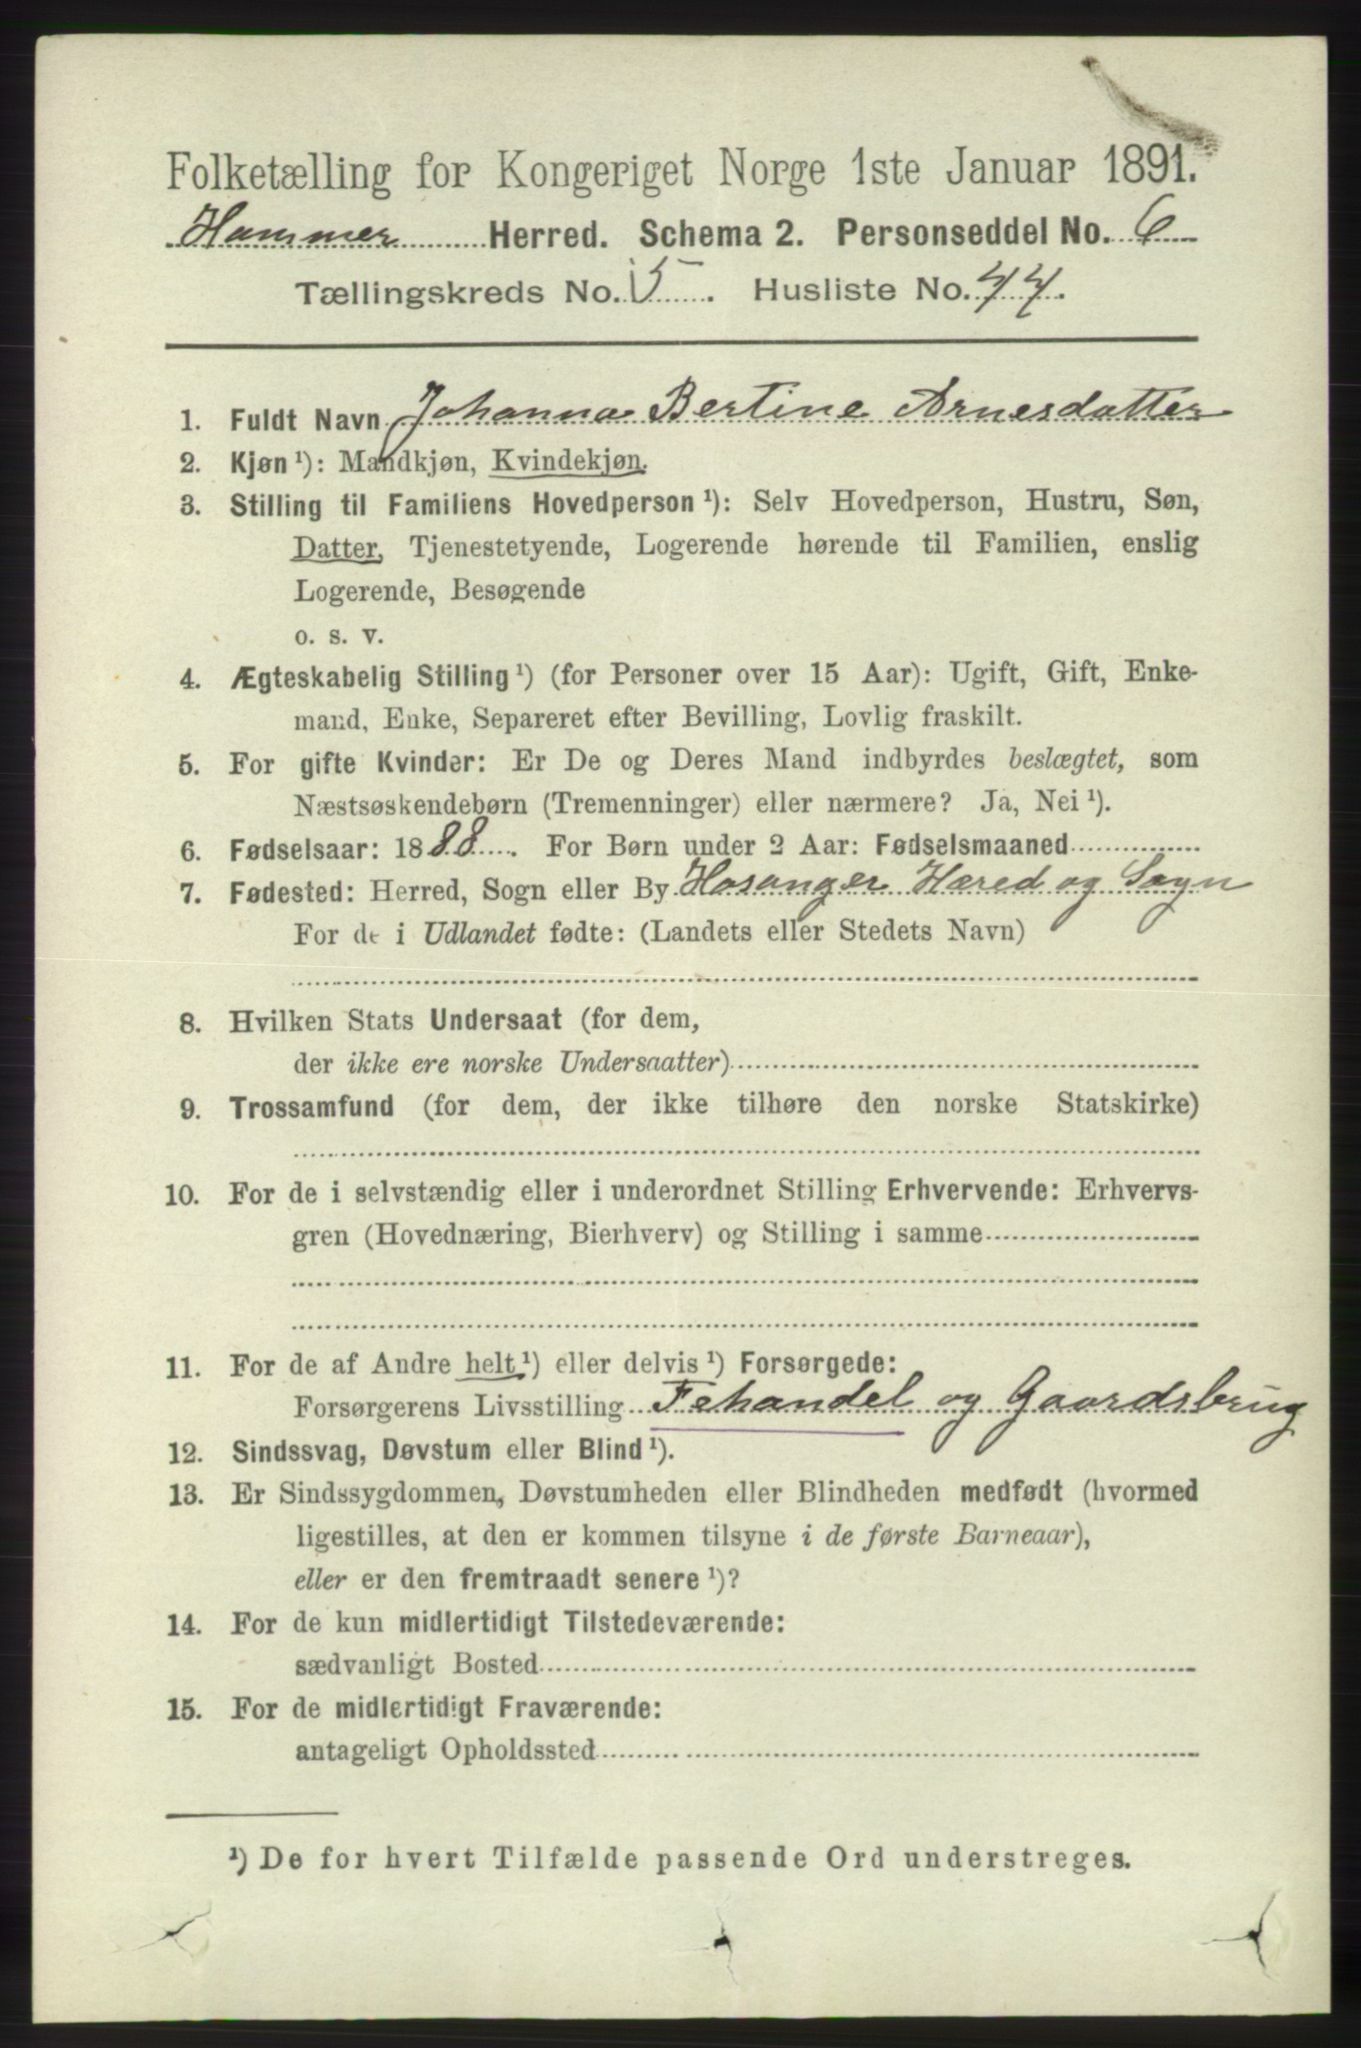 Folketælling for Kongeriget Norge 1ste Januar 1891.
Hammer Herred. Schema 2. Personseddel No. 6
Tællingskreds No. 5. Husliste No. 44.
1. Fuldt Navn Johanna Bertine Arnesdatter
2. Kjøn ¹): Mandkjøn, Kvindekjøn.
3. Stilling til Familiens Hovedperson ¹): Selv Hovedperson, Hustru, Søn,
Datter, Tjenestetyende, Logerende hørende til Familien, enslig
Logerende, Besøgende
o. s. v.
4. Ægteskabelig Stilling ¹) (for Personer over 15 Aar): Ugift, Gift, Enke-
mand, Enke, Separeret efter Bevilling, Lovlig fraskilt.
5. For gifte Kvinder: Er De og Deres Mand indbyrdes beslægtet, som
Næstsøskendebørn (Tremenninger) eller nærmere? Ja, Nei ¹).
6. Fødselsaar: 1888. For Børn under 2 Aar: Fødselsmaaned
7. Fødested: Herred, Sogn eller By Hosanger Hæred og Sogn
For de i Udlandet fødte: (Landets eller Stedets Navn)
8. Hvilken Stats Undersaat (for dem,
der ikke ere norske Undersaatter)
9. Trossamfund (for dem, der ikke tilhøre den norske Statskirke)
10. For de i selvstændig eller i underordnet Stilling Erhvervende: Erhvervs-
gren (Hovednæring, Bierhverv) og Stilling i samme
11. For de af Andre helt ¹) eller delvis ¹) Forsørgede:
Forsørgerens Livsstilling Fehandel og Gaardsbrug
12. Sindssvag, Døvstum eller Blind ¹).
13. Er Sindssygdommen, Døvstumheden eller Blindheden medfødt (hvormed
ligestilles, at den er kommen tilsyne i de første Barneaar),
eller er den fremtraadt senere ¹)?
14. For de kun midlertidigt Tilstedeværende:
sædvanligt Bosted
15. For de midlertidigt Fraværende:
antageligt Opholdssted
¹) De for hvert Tilfælde passende Ord understreges.